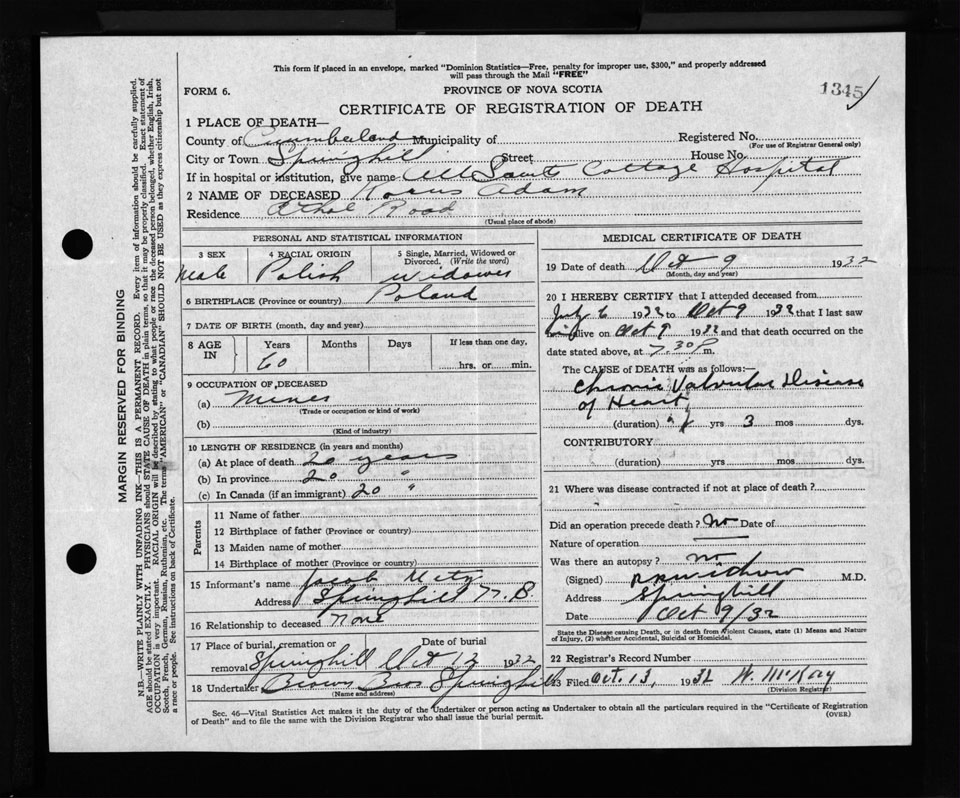 This form if placed in an envelope, marked "Dominion Statistics—Free, penalty for improper use, $300," and properly addressed
will pass through the Mail "FREE"
FORM 6.
PROVINCE OF NOVA SCOTIA
1345
CERTIFICATE OF REGISTRATION OF DEATH
1 PLACE OF DEATH—
County of Cumberland Municipality of Registered No.
(For use of Registrar General only)
City or Town Springhill Street House No.
If in hospital or institution, give name All Saints Cottage Hospital
2 NAME OF DECEASED Adam
Residence Athol Road
(Usual place of abode)
PERSONAL AND STATISTICAL INFORMATION
3 SEX 4 RACIAL ORIGIN 5 Single, Married, Widowed or Divorced. (Write the word)
Male Polish Widower
6 BIRTHPLACE (Province or country) Poland
7 DATE OF BIRTH (month, day and year)
8 AGE IN Years Months Days If less than one day,
60 hrs. or min.
9 OCCUPATION OF DECEASED
(a) Miner
(Trade or occupation or kind of work)
(b)
(Kind of industry)
10 LENGTH OF RESIDENCE (in years and months)
(a) At place of death 20 years
(b) In province 20 "
(c) In Canada (if an immigrant) 20 "
Parents
11 Name of father
12 Birthplace of father (Province or country)
13 Maiden name of mother
14 Birthplace of mother (Province or country)
15 Informant's name Jacob
Address Springhill N.S.
16 Relationship to deceased None
17 Place of burial, cremation or removal Date of burial
Springhill Oct 12 1932
18 Undertaker Brown Bros Springhill
(Name and address)
MEDICAL CERTIFICATE OF DEATH
19 Date of death Oct 9 1932
(Month, day and year)
20 I HEREBY CERTIFY that I attended deceased from
July 6 1932 to Oct 9 1932 that I last saw
him alive on Oct 9 1932 and that death occurred on
date stated above, at 7.30 P m.
The CAUSE of DEATH was as follows:—
Chronic Valvular Disease
of Heart
(duration) yrs 3 mos dys.
CONTRIBUTORY
(duration) yrs mos dys.
21 Where was disease contracted if not at place of death?
Did an operation precede death? No Date of
Nature of operation
Was there an autopsy? no
(Signed) M.D.
Address Springhill
Date Oct 9/32
State the Disease causing Death, or in death from Violent Causes, state (1) Means and Nature
of Injury, (2) whether Accidental, Suicidal or Homicidal.
22 Registrar's Record Number
23 Filed Oct. 13, 1932 W. McKay
(Division Registrar)
Sec. 46—Vital Statistics Act makes it the duty of the Undertaker or person acting as Undertaker to obtain all the particulars required in the "Certificate of Registration
of Death" and to file the same with the Division Registrar who shall issue the burial permit.
(OVER)
MARGIN RESERVED FOR BINDING
N.B.—WRITE PLAINLY WITH UNFADING INK—THIS IS A PERMANENT RECORD. Every item of information should be carefully supplied.
AGE should be stated EXACTLY. PHYSICIANS should STATE CAUSE OF DEATH in plain terms, so that it may be properly classified. Exact statement of
OCCUPATION is very important. RACIAL ORIGIN will be described by stating to what people or race the deceased person belonged, whether English, Irish,
Scotch, French, German, Russian, Ruthenian, etc. The terms "AMERICAN" or "CANADIAN" SHOULD NOT BE USED as they express citizenship but not
a race or people. See instructions on back of Certificate.